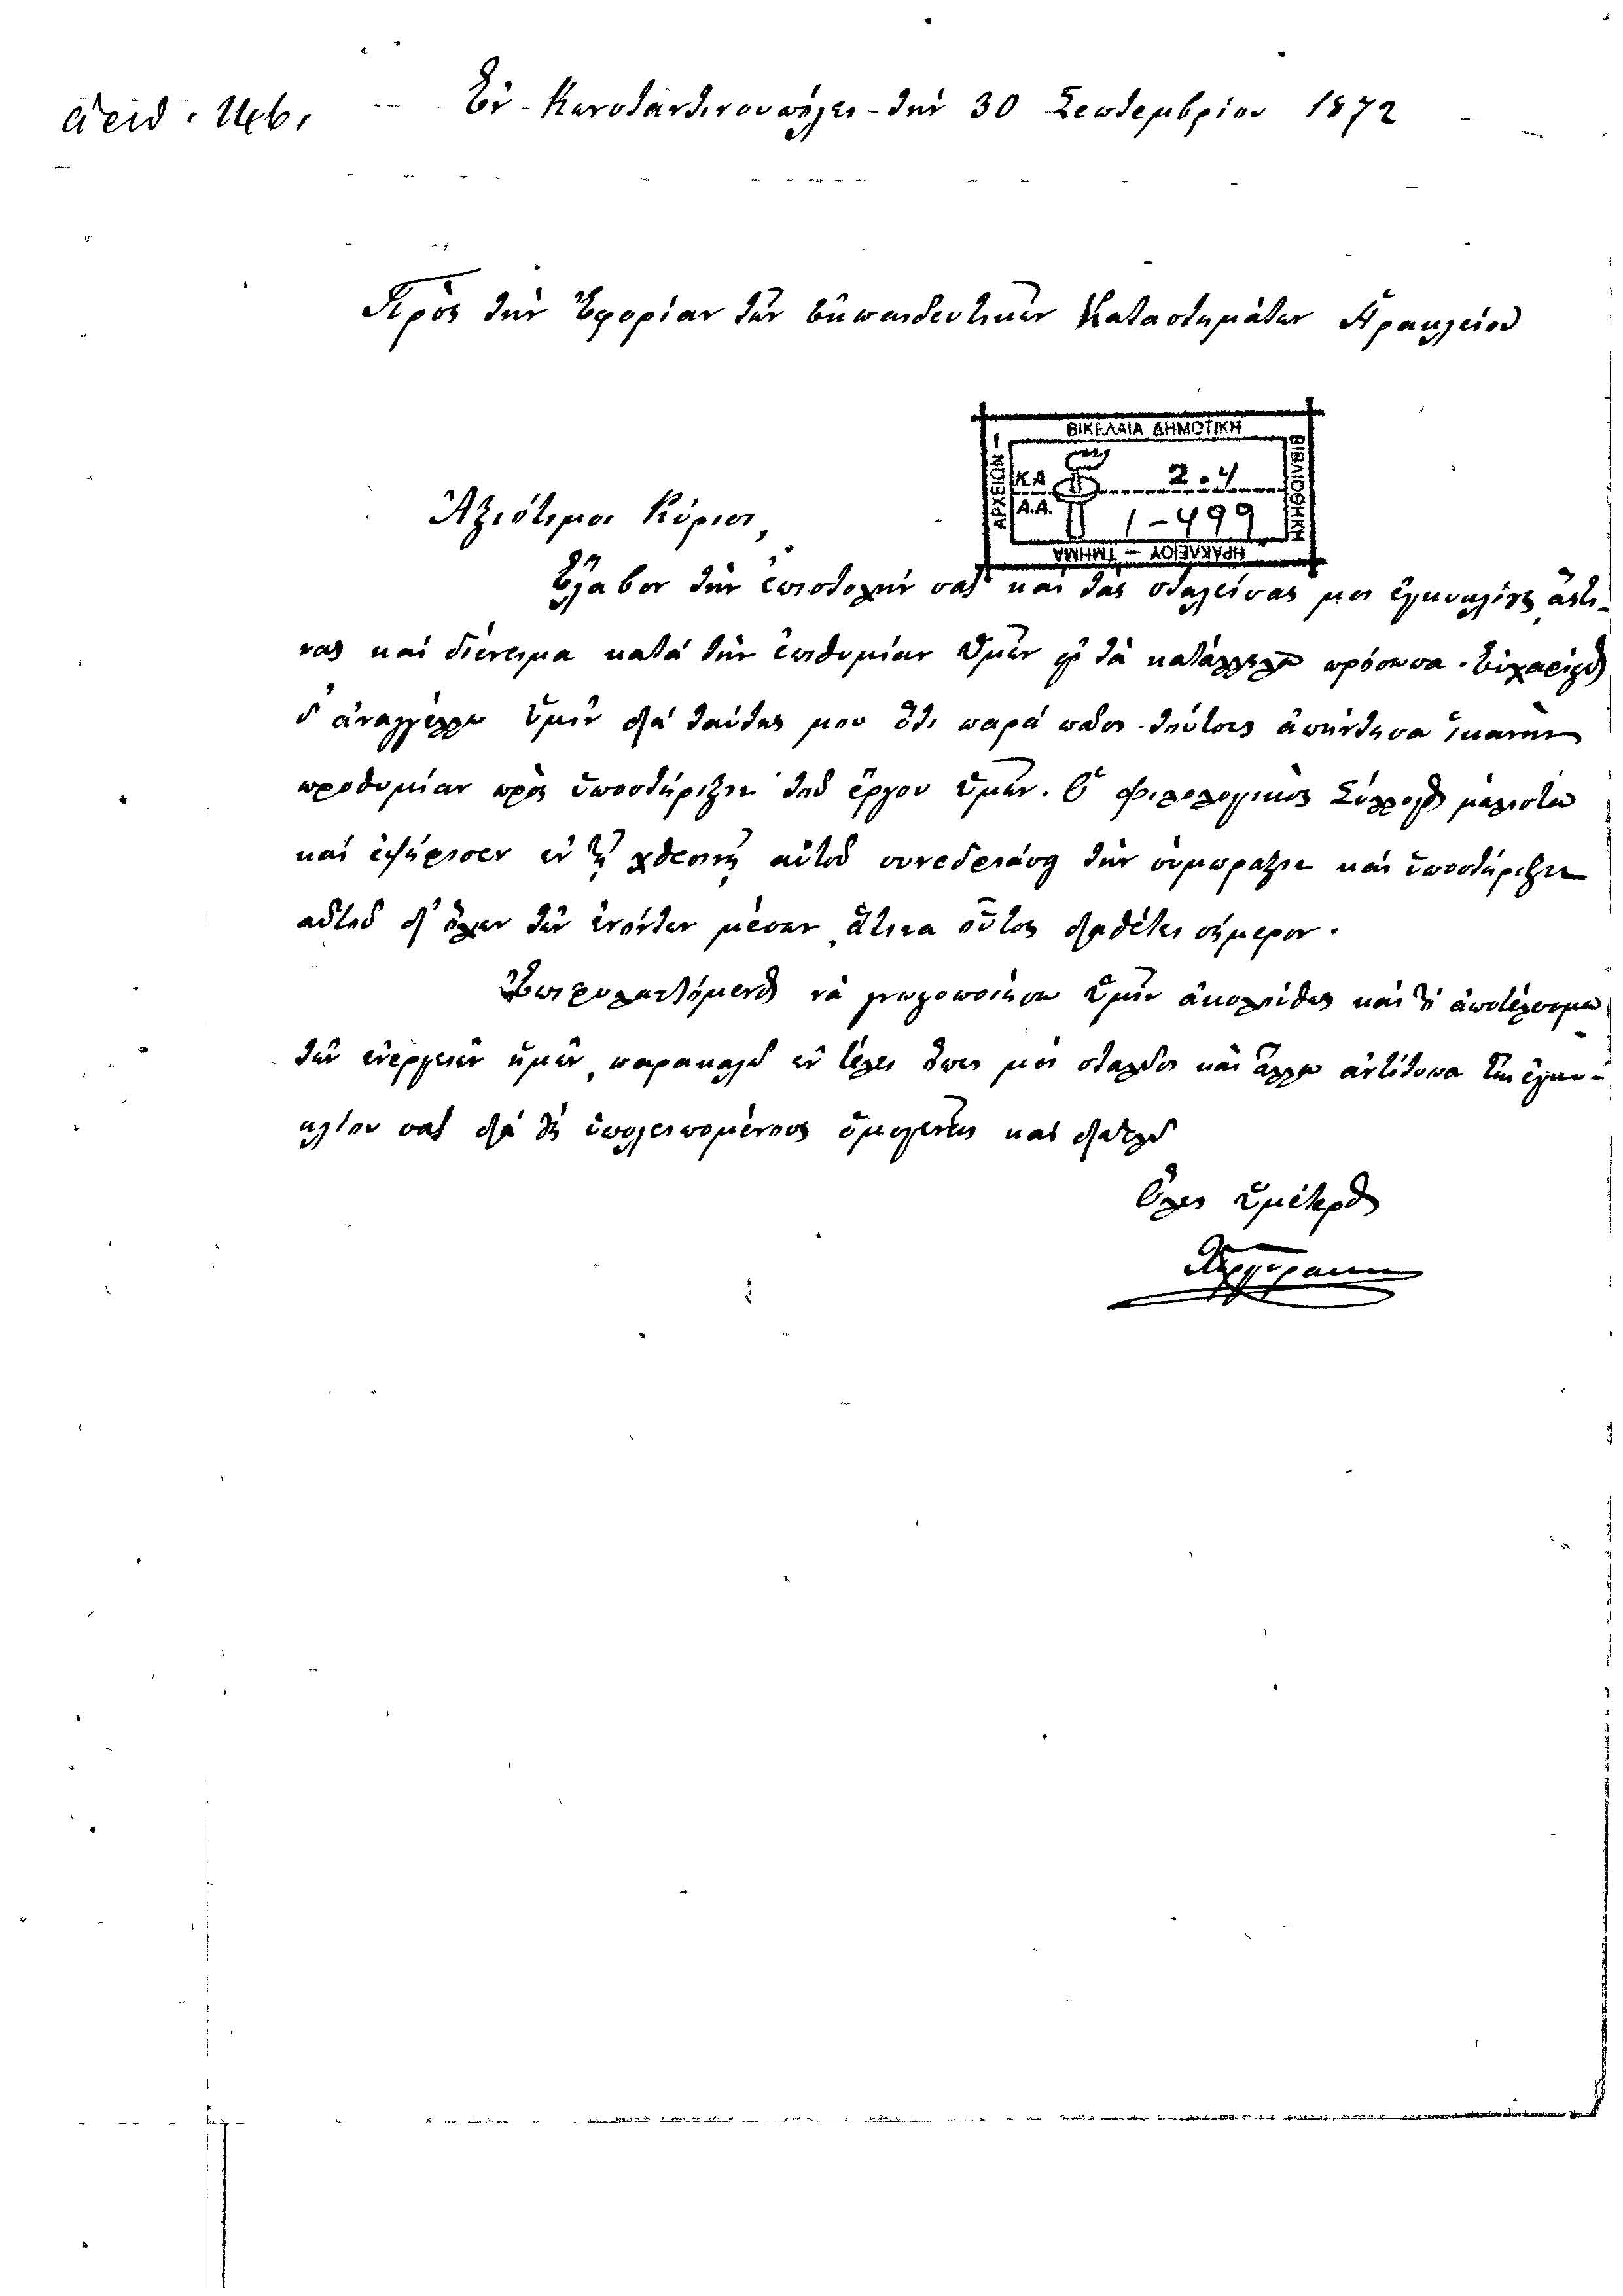 ἀριθ. 146.
Ἐν Κωνσταντινουπόλει τὴν 30 Σεπτεμβρίου 1872
Πρὸς τὴν Ἐφορίαν τῶν Ἐκπαιδευτικῶν Καταστημάτων Ἡρακλείου
ΒΙΚΕΛΑΙΑ ΔΗΜΟΤΙΚΗ
ΒΙΒΛΙΟΘΗΚΗ
ΗΡΑΚΛΕΙΟΥ – ΤΜΗΜΑ
ΑΡΧΕΙΩΝ
Κ.Α. 2.4
Α.Α. 1-499
Ἀξιότιμοι Κύριοι,
Ἔλαβον τὴν ἐπιστολήν σας καὶ τὰς σταλείσας μοι ἐγκυκλίους, ἅςτι-
νας καὶ διένειμα κατὰ τὴν ἐπιθυμίαν ὑμῶν εἰς τὰ κατάλληλα πρόσωπα. Εὐχαρίστως
δ' ἀναγγέλλω ὑμῖν διὰ ταύτης μου ὅτι παρὰ πᾶσι τούτοις ἀπήντησα ἱκανὴν
προθυμίαν πρὸς ὑποστήριξιν τοῦ ἔργου ὑμῶν. Ὁ Φιλολογικὸς Σύλλογος μάλιστα
καὶ ἐψήφισεν ἐν τῇ χθεσινῇ αὐτοῦ συνεδριάσει τὴν σύμπραξιν καὶ ὑποστήριξιν
αὐτοῦ δι' ὅλων τῶν ἐνόντων μέσων, ἅτινα οὗτος διαθέτει σήμερον.
Ἐπιφυλαττόμενος νὰ γνωστοποιήσω ὑμῖν ἀκολούθως καὶ τὸ ἀποτέλεσμα
τῶν ἐνεργειῶν ἡμῶν, παρακαλῶ ἐν τέλει ὅπως μοὶ σταλῶσι καὶ ἄλλα ἀντίτυπα τῆς ἐγκυ-
κλίου σας διὰ τοὺς ὑπολειπομένους ὁμογενεῖς καὶ διατελῶ
Ὅλως ὑμέτερος